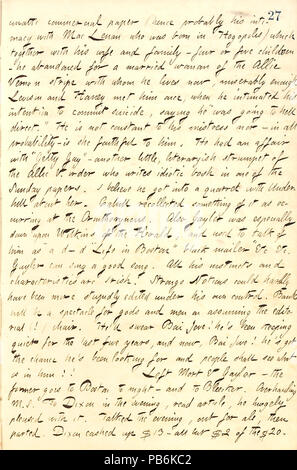 27
small commercial paper (hence probably his inti-
macy with Mac Lenan who was born in Hogopolis) which
together with his wife and family – four or five children
he abandoned for a married woman of the Allie
Vernon stripe with whom he lives now, miserably enough.
Levison and Haney met him once, when he intimated his
intention to commit suicide, saying he "was going to hell
direct." He is not constant to his mistress nor – in all
probability – is she faithful to him. He had an affair
with "Getty Gay" – another little, literaryish strumpet of
the Allie V order who writes idiotic bosh in one of the
Sunday papers. I believe he got into a quarrel with Under-
hill about her. Cahill recollected something of it as oc-
curring at the Ornithoryncus. Alas Gayler was especially
down upon Watkins of the Herald, and used to talk of
him as "a d––d 'Life in Boston' black mailer" &c &c.
Gayler can sing a good song. All his instincts and
characteristics are Irish. Strange Notions could hardly
have been more stupidly edited under his own control. Bank
will be a spectacle for gods and men on assuming the edito-
rial (!) chair. He'll swear Bai Jove! he's been keeping
quiet for the last five years, and now, Bai Jove! he's got
the chance he's been looking for and people shall see what
is in him!! Left Mort & Gaylor – the
former goes to Boston to-night – and to Bleecker.
M.S. to Dixon in the evening, read article, he hugely
pleased with it. Talked the evening, out for ale, then
parted. Dixon cashed up $13 – all but $2 of the $20.